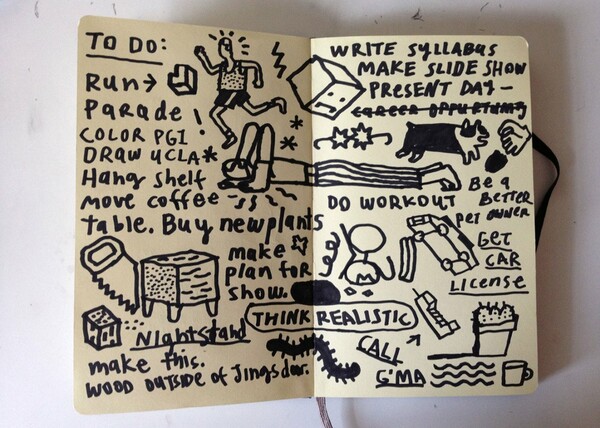 TO DO:
Run→
Parade!
COLOR PG1
DRAW UCLA*
Hang shelf
move coffee
table. Buy new plants
make
plan for
show.
THINK REALISTIC
Nightstand
make this.
WOOD OUTSIDE of Jings door.
WRITE syllabus
MAKE SLIDE SHOW
PRESENT DAY-
CAREER OPPURTUNITY
DO WORKOUT
Be a
BETTER
PET OWNER
GET
CAR
LICENSE
CALL
G'MA